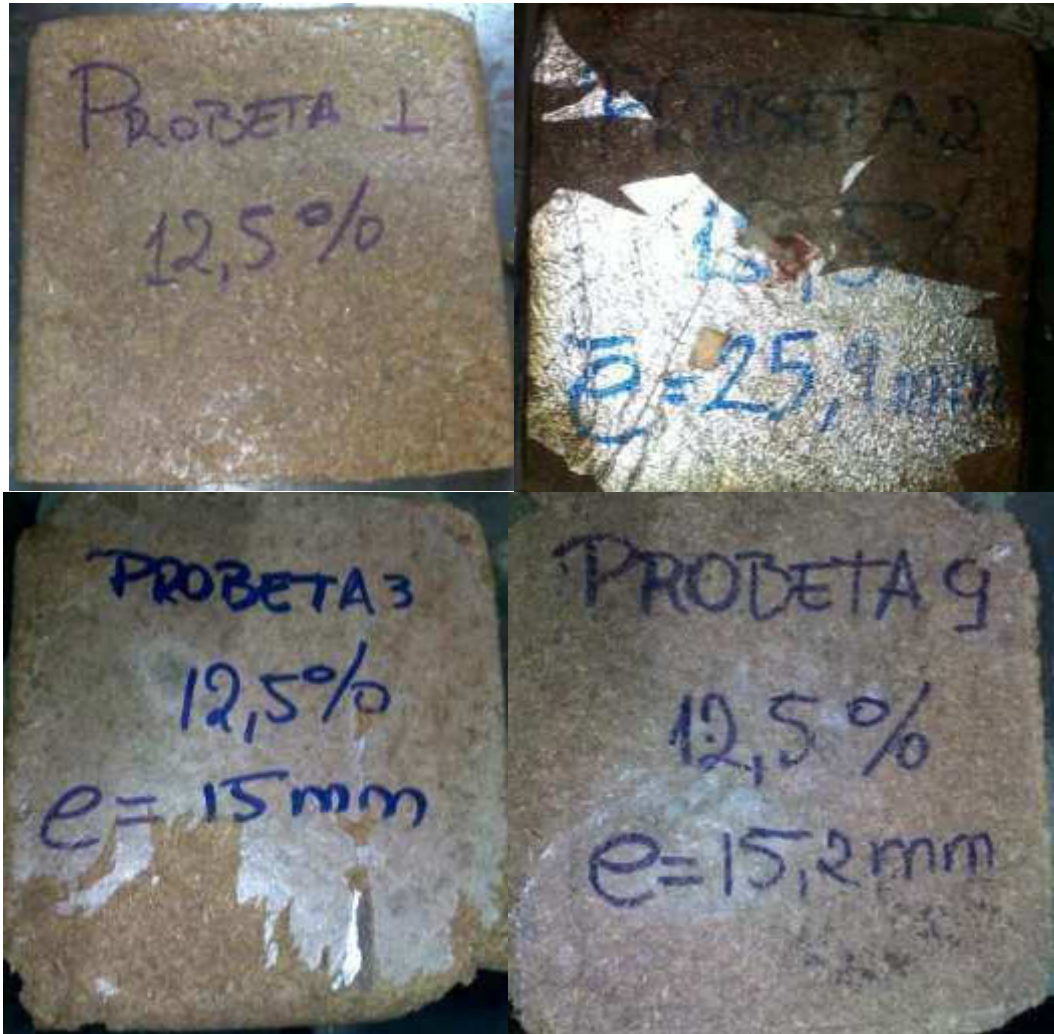 PROBETA 1
12,5%
PROBETA 2
12,5%
e=25,9mm
PROBETA 3
12,5%
e= 15mm
PROBETA 9
12,5%
e=15,2mm